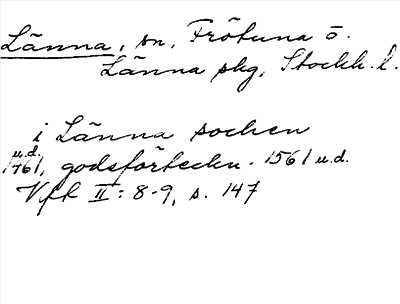 Länna, sn, Frötuna ö.
Länna skg, Stockh. l.
i Länna socken
u.d.
1461, godsförteckn. 1561 u.d.
Vfk II: 8-9, s. 147